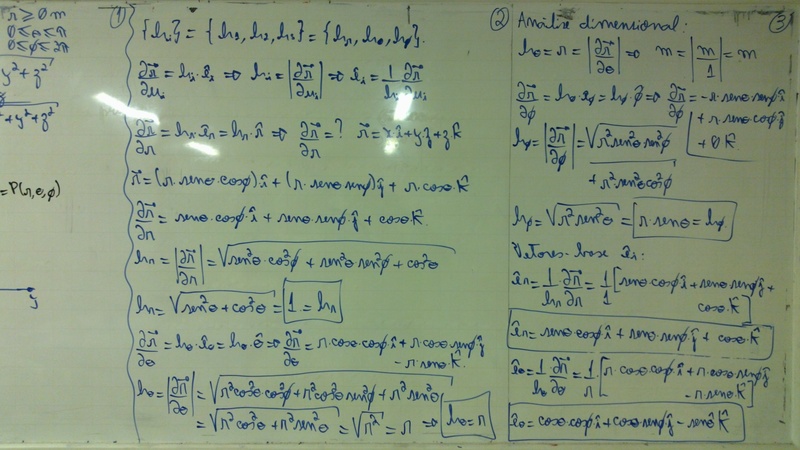 r ≥ 0 m
0 ≤ θ ≤ π
0 ≤ φ ≤ 2π
y² + z²
+ y² + z²
= P(r, θ, φ)
y
①
{hi} = {h1, h2, h3} = {hr, hθ, hφ}.
∂r⃗/∂ui = hi·êi ⇒ hi = |∂r⃗/∂ui| ⇒ êi = 1/hi ∂r⃗/∂ui
∂r⃗/∂r = hr·êr = hr·r̂ ⇒ ∂r⃗/∂r = ? r⃗ = x·î + y·ĵ + z·k̂
r⃗ = (r·senθ·cosφ)·î + (r·senθ·senφ)ĵ + r·cosθ·k̂
∂r⃗/∂r = senθ·cosφ·î + senθ·senφ·ĵ + cosθ·k̂.
hr = |∂r⃗/∂r| = √(sen²θ·cos²φ + sen²θ·sen²φ + cos²θ)
hr = √(sen²θ + cos²θ) = 1 = hr
∂r⃗/∂θ = hθ·êθ = hθ·θ̂ ⇒ ∂r⃗/∂θ = r·cosθ·cosφ·î + r·cosθ·senφ·ĵ
- r·senθ·k̂.
hθ = |∂r⃗/∂θ| = √(r²cos²θ·cos²φ + r²cos²θ·sen²φ + r²sen²θ)
= √(r²cos²θ + r²sen²θ) = √r² = r ⇒ hθ = r
②
Análise dimensional:
hθ = r = |∂r⃗/∂θ| ⇒ m = |m/1| = m
∂r⃗/∂φ = hφ·êφ = hφ·φ̂ ⇒ ∂r⃗/∂φ = -r·senθ·senφ·î
+ r·senθ·cosφ·ĵ
+ 0k̂
hφ = |∂r⃗/∂φ| = √(r²sen²θ·sen²φ
+ r²sen²θ·cos²φ)
hφ = √(r²sen²θ) = r·senθ = hφ
Vetores-base êi:
êr = 1/hr ∂r⃗/∂r = 1/1 [senθ·cosφ·î + senθ·senφ·ĵ +
cosθ·k̂]
êr = senθ·cosφ·î + senθ·senφ·ĵ + cosθ·k̂
êθ = 1/hθ ∂r⃗/∂θ = 1/r [r·cosθ·cosφ·î + r·cosθ·senφ·ĵ
- r·senθ·k̂]
êθ = cosθ·cosφ·î + cosθ·senφ·ĵ - senθ·k̂
③